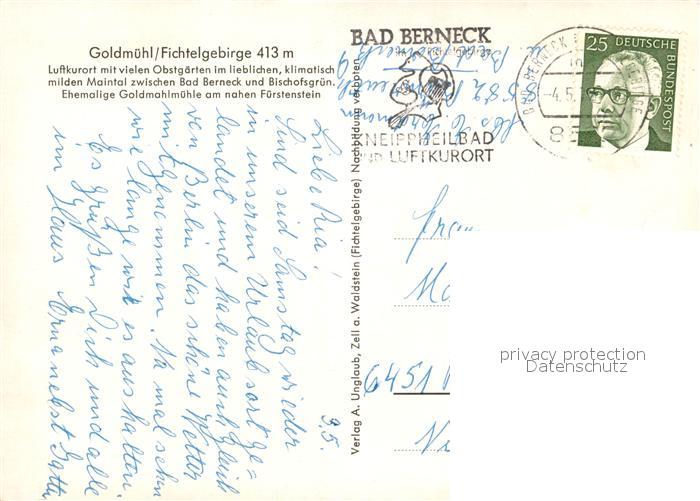 Goldmühl/Fichtelgebirge 413 m
Luftkurort mit vielen Obstgärten im lieblichen, klimatisch
milden Maintal zwischen Bad Berneck und Bischofsgrün.
Ehemalige Goldmahlmühle am nahen Fürstenstein
3.5.
Liebe Ria!
Sind seid Samstag wieder
in unserem Urlaubsort ge=
landet und haben auch gleich
von Berlin das schöne Wetter
mitgenommen. Na mal sehn
wie lange wir es aushalten.
Es grüßen Dich und alle
im Haus Erna nebst Gatte
Verlag A. Unglaub, Zell a. Waldstein (Fichtelgebirge) Nachbildung verboten
BAD BERNECK
KNEIPPHEILBAD
UND LUFTKURORT
BAD BERNECK
-4.5.
85
25 DEUTSCHE
BUNDESPOST
Frau
6451
privacy protection
Datenschutz